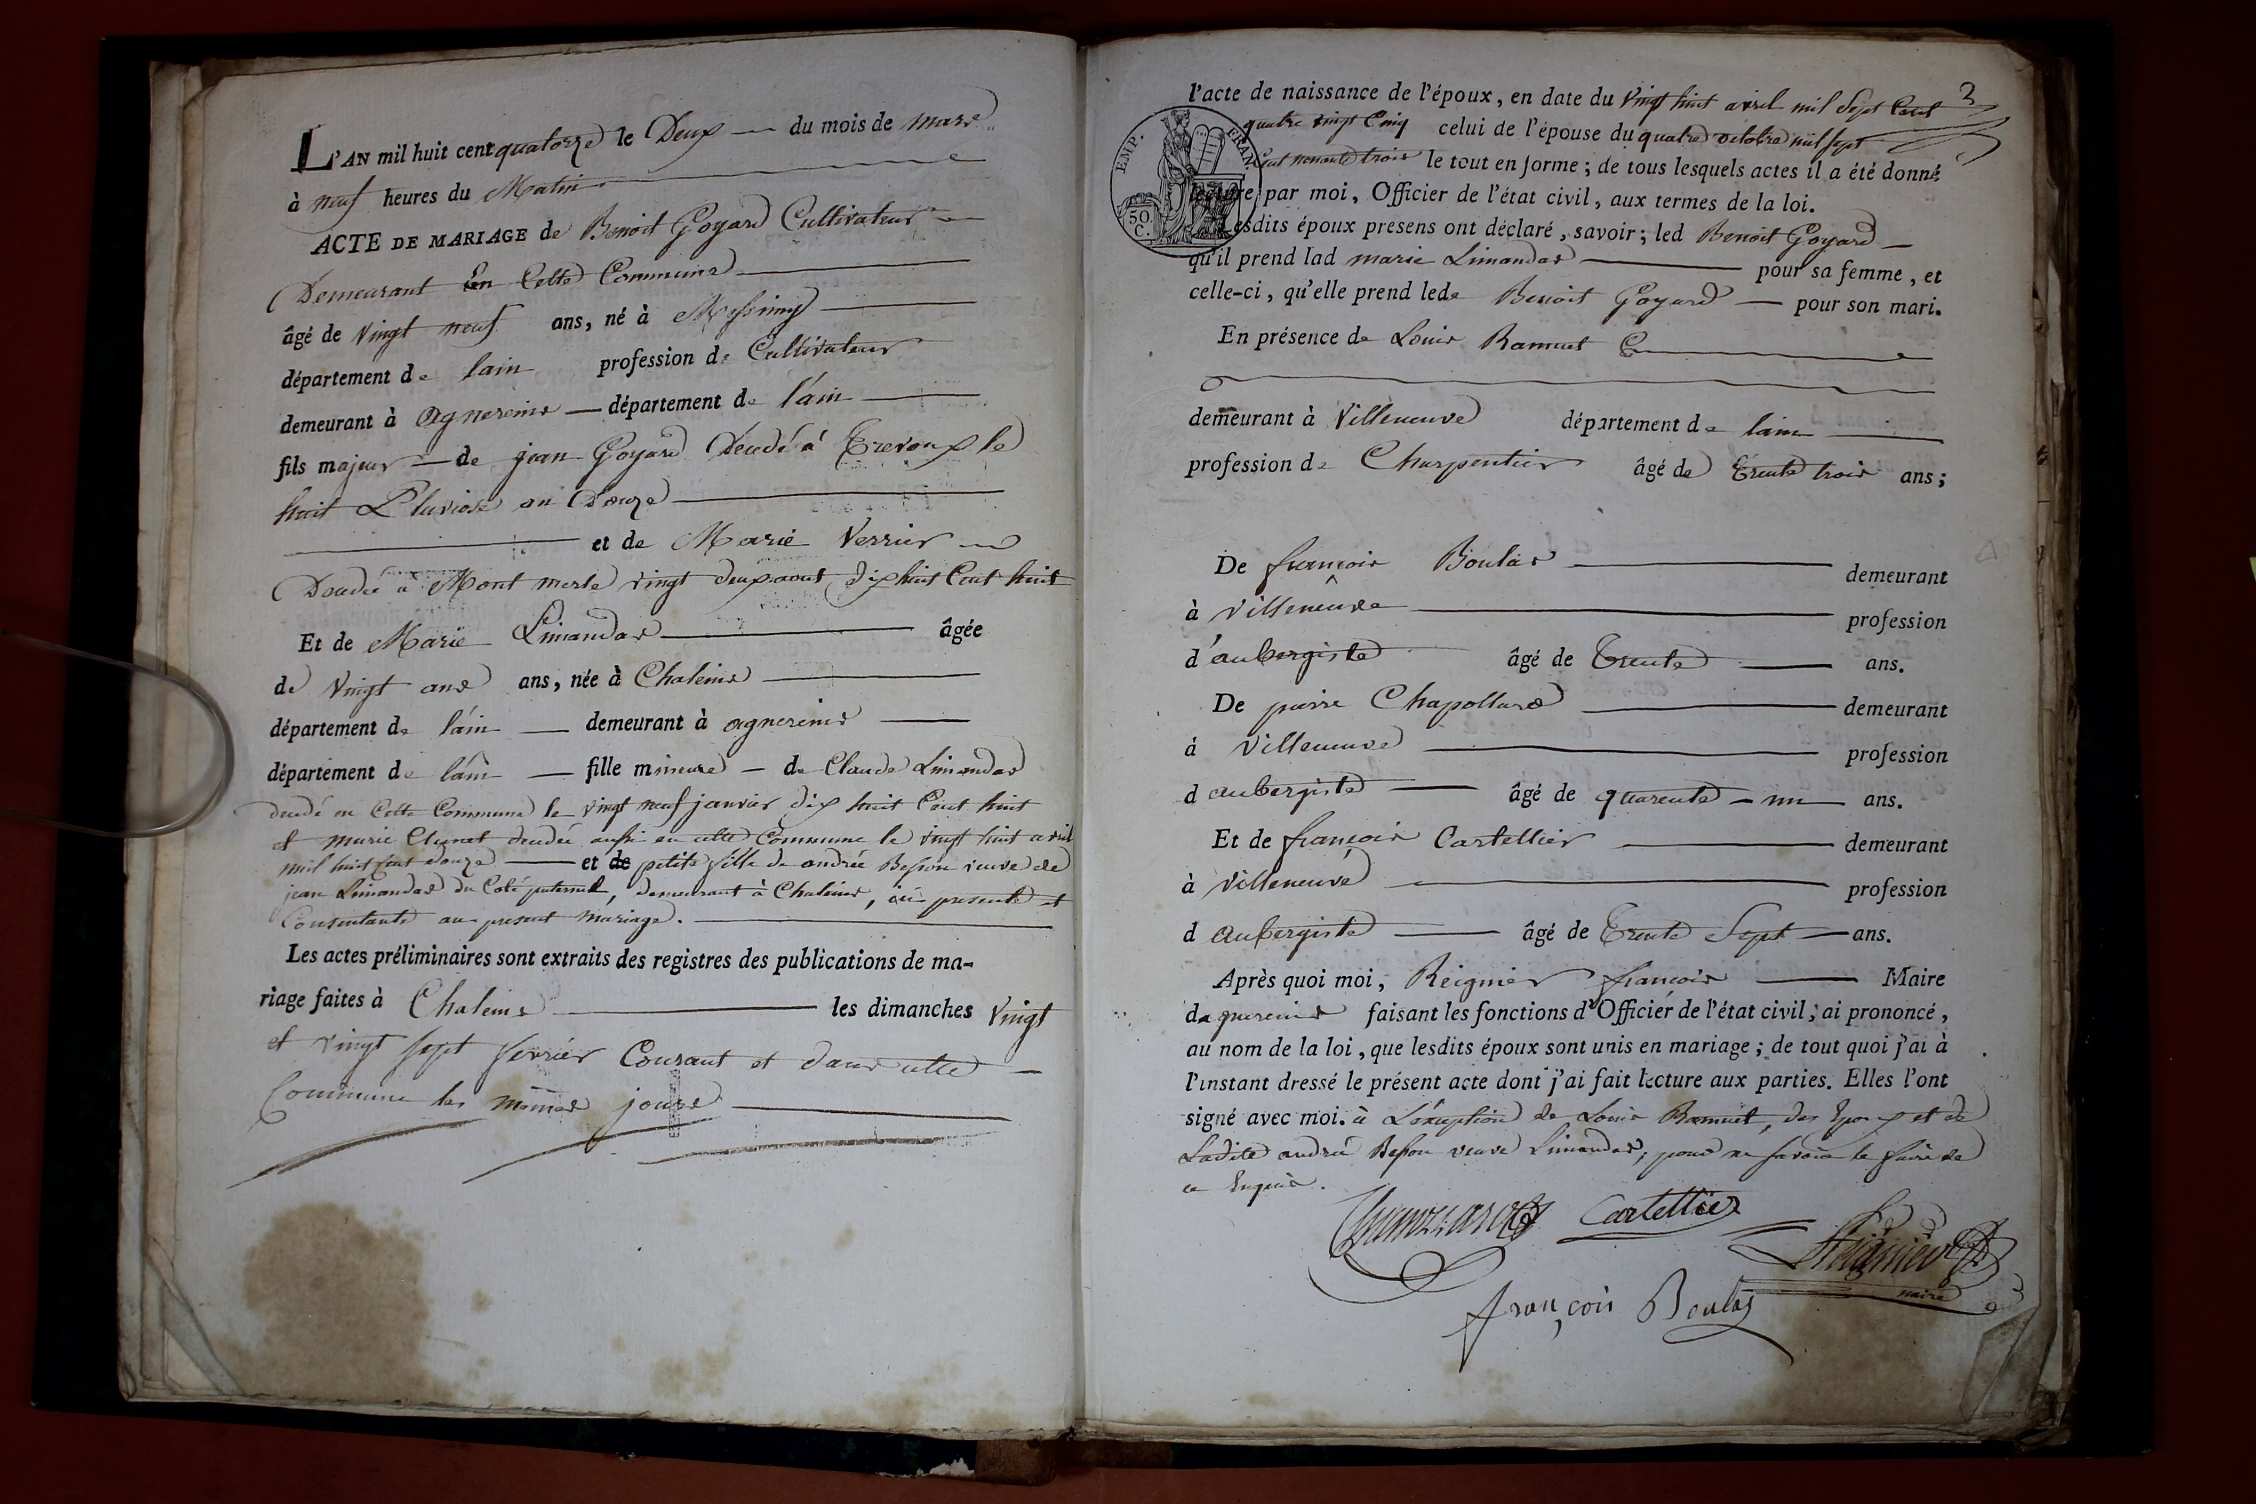 L'AN mil huit cent quatorze le Deux du mois de mars
à neuf heures du Matin
ACTE DE MARIAGE de Benoit Goyard Cultivateur
Demeurant En Cette Commune
âgé de vingt neuf ans, né à Messimy
département de lain profession de Cultivateur
demeurant à agnereins département de l'ain
fils majeur de jean Goyard Decedé à Trevoux le
huit Pluviose an Douze
et de Marie Verrier
Decedée à Mont merle vingt deux aout dix huit Cent huit
Et de Marie Limandas âgée
de vingt ans ans, née à Chaleins
département de l'ain demeurant à agnereins
département de l'ain fille mineure de Claude Limandas
decedé en Cette Commune le vingt neuf janvier dix huit Cent huit
et marie Clunet decedée aussi en cette Commune le vingt huit avril
mil huit Cent douze et de petite fille de andrée Besson veuve de
jean Limandas du Coté paternel, demeurant à Chaleins, ici presente et
Consentante au present mariage.
Les actes préliminaires sont extraits des registres des publications de ma-
riage faites à Chaleins les dimanches vingt
et vingt sept fevrier Courant et dans cette
Commune les mêmes jours
3
l'acte de naissance de l'époux, en date du vingt huit avril mil Sept Cent
quatre vingt Cinq celui de l'épouse du quatre octobre mil sept
Cent nonante trois le tout en forme ; de tous lesquels actes il a été donné
lecture par moi, Officier de l'état civil, aux termes de la loi.
Lesdits époux presens ont déclaré, savoir ; led Benoit Goyard
qu'il prend lad marie Limandas pour sa femme, et
celle-ci, qu'elle prend lede Benoit Goyard pour son mari.
En présence de Louis Ramuet
demeurant à Villeneuve département de lain
profession de Charpentier âgé de Trente trois ans ;
De françois Boulas demeurant
à villeneuve profession
d'aubergiste âgé de Trente ans.
De pierre Chapolland demeurant
à villeneuve profession
d aubergiste âgé de quarente un ans.
Et de françois Cartellier demeurant
à villeneuve profession
d aubergiste âgé de Trente Sept ans.
Après quoi moi, Reignier françois Maire
dagnereins faisant les fonctions d'Officier de l'état civil, ai prononcé,
au nom de la loi, que lesdits époux sont unis en mariage ; de tout quoi j'ai à
l'instant dressé le présent acte dont j'ai fait lecture aux parties. Elles l'ont
signé avec moi. à L'éxception de Louis Ramuet, des Epoux et de
Ladite andrée Besson veuve Limandas, pour ne savoir le faire de
ce Enquis.
Cartellier
Reignier
maire
françois Boulas
TEMP. FRAN.
50. C.